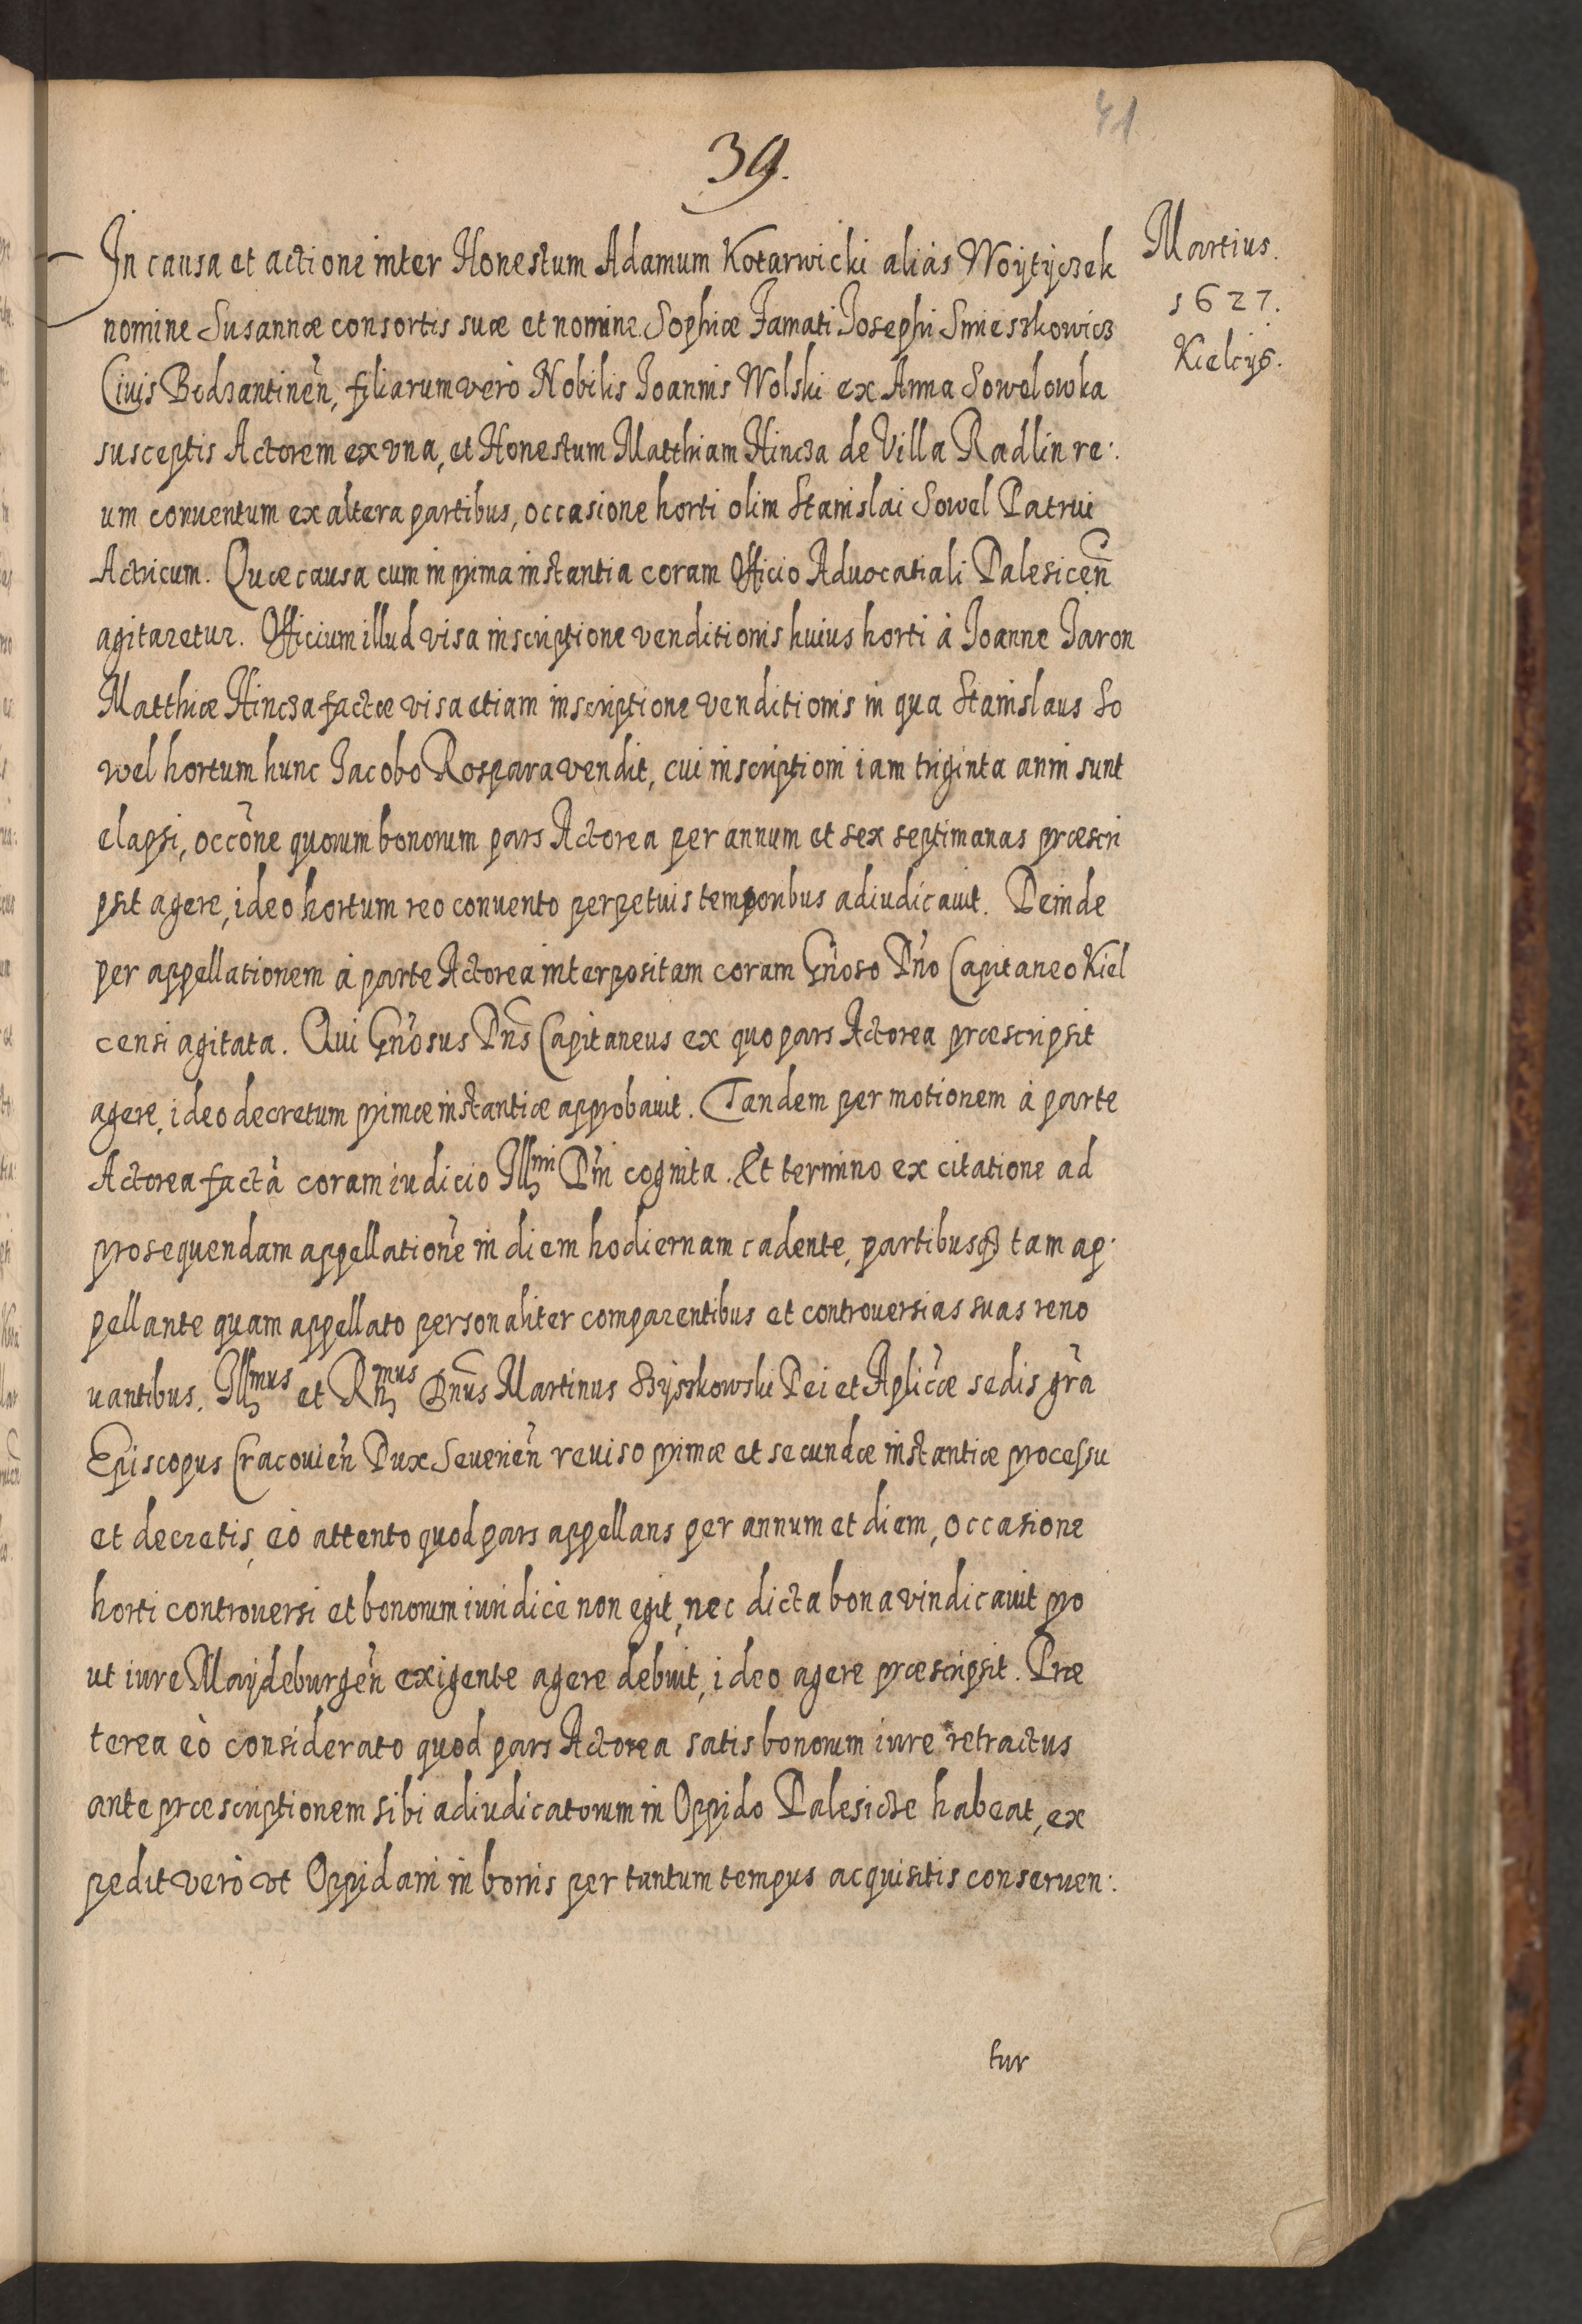 41
39.
Martius.
1627.
Kielcijs.
In causa et actione inter Honestum Adamum Kotarwicki aliàs Woÿtÿczek
nomine Susannæ consortis suæ et nomine Sophiæ Famati Josephi Smieszkowicz
Ciuis Bodzantineñ, filiarum verò Nobilis Joannis Wolski ex Anna Sowelowka
susceptis Actorem ex vna, et Honestum Matthiam Hincza de Villa Radlin re:
um conuentum ex altera partibus, occasione horti olim Stanislai Sowel Patrui
Actricum. Quæ causa cum in prima instantia coram Officio Aduocatiali Dalesiceñ
agitaretur. Officium illud visa inscriptione venditionis huius horti à Joanne Jaron
Matthiæ Hincza factæ visa etiam inscriptione venditionis in qua Stanislaus So
wel hortum hunc Jacobo Rospara vendit, cui inscriptioni iam triginta anni sunt
elapsi, occõne quorum bonorum pars Actorea per annum et sex septimanas præscri
psit agere, ideo hortum reo conuento perpetuis temporibus adiudicauit. Deinde
per appellationem à parte Actorea interpositam coram Gñoso Dño Capitaneo Kiel
censi agitata. Qui Gñosus Dñs Capitaneus ex quo pars Actorea præscripsit
agere, ideo decretum primæ instantiæ approbauit. Tandem per motionem à parte
Actorea factà coram iudicio Illmi Dñi cognita. Et termino ex citatione ad
prosequendam appellationẽ in diem hodiernam cadente, partibusq3 tam ap:
pellante quam appellato personaliter comparentibus et controuersias suas reno
uantibus. Illmus et Rñmus Dñus Martinus Szÿszkowski Dei et Aplicæ sedis grã
Episcopus Cracouieñ Dux Seuerieñ reuiso primæ et secundæ instantiæ processu
et decretis, eò attento quod pars appellans per annum et diem, occasione
horti controuersi et bonorum iuridicè non egit, nec dicta bona vindicauit pro
ut iure Maÿdeburgeñ exigente agere debuit, ideo agere præscripsit. Præ
terea eò considerato quod pars Actorea satis bonorum iure retractus
ante præscriptionem sibi adiudicatorum in Oppido Dalesicze habeat, ex
pedit verò vt Oppidani in bonis per tantum tempus acquisitis conseruen:
tur